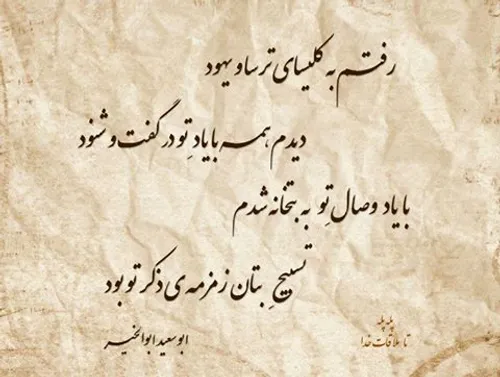 رفتم به کلیسای ترسا و یهود
دیدم همه با یادِ تو در گفت و شنود
با یاد وصالِ تو به بتخانه شدم
تسبیحِ بتان زمزمه‌ی ذکر تو بود
ابوسعید ابوالخیر
پله پله
تا ملاقات خدا